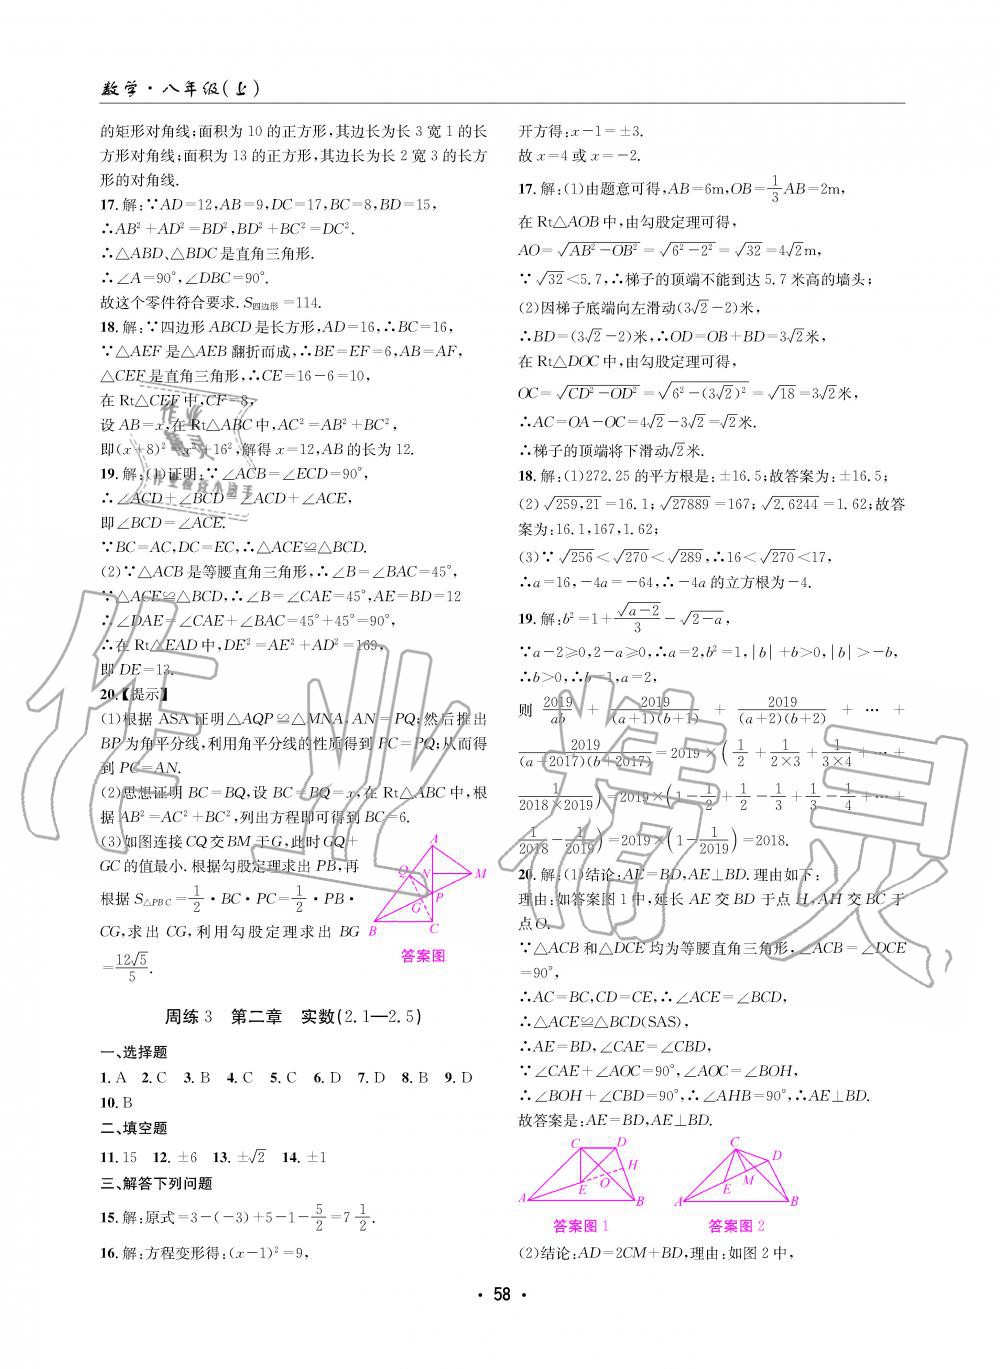 数学·八年级(上)
的矩形对角线;面积为 10 的正方形,其边长为长 3 宽 1 的长
方形对角线;面积为 13 的正方形,其边长为长 2 宽 3 的长方
形的对角线.
17. 解:∵AD=12,AB=9,DC=17,BC=8,BD=15,
∴AB²+AD²=BD²,BD²+BC²=DC².
∴△ABD、△BDC 是直角三角形.
∴∠A=90°,∠DBC=90°.
故这个零件符合要求. S四边形=114.
18. 解:∵四边形 ABCD 是长方形,AD=16,∴BC=16,
∵△AEF 是△AEB 翻折而成,∴BE=EF=6,AB=AF,
△CEF 是直角三角形,∴CE=16-6=10,
在 Rt△CEF 中,CF=8,
设 AB=x,在 Rt△ABC 中,AC²=AB²+BC²,
即(x+8)²=x²+16²,解得 x=12,AB 的长为 12.
19. 解:(1)证明:∵∠ACB=∠ECD=90°,
∴∠ACD+∠BCD=∠ACD+∠ACE,
即∠BCD=∠ACE.
∵BC=AC,DC=EC,∴△ACE≌△BCD.
(2)∵△ACB 是等腰直角三角形,∴∠B=∠BAC=45°,
∵△ACE≌△BCD,∴∠B=∠CAE=45°,AE=BD=12
∴∠DAE=∠CAE+∠BAC=45°+45°=90°,
∴在 Rt△EAD 中,DE²=AE²+AD²=169,
即 DE=13.
20.【提示】
(1)根据 ASA 证明△AQP≌△MNA,AN=PQ;然后推出
BP 为角平分线,利用角平分线的性质得到 PC=PQ;从而得
到 PC=AN.
(2)思想证明 BC=BQ,设 BC=BQ=x,在 Rt△ABC 中,根
据 AB²=AC²+BC²,列出方程即可得到 BC=6.
(3)如图连接 CQ 交 BM 于 G,此时 GQ+
GC 的值最小.根据勾股定理求出 PB,再
根据 S△PBC=1/2·BC·PC=1/2·PB·
CG,求出 CG,利用勾股定理求出 BG
=12√5/5.
A
Q
N
M
P
G
B
C
答案图
周练 3 第二章 实数(2.1—2.5)
一、选择题
1. A 2. C 3. B 4. C 5. C 6. D 7. D 8. B 9. D
10. B
二、填空题
11. 15 12. ±6 13. ±√2 14. ±1
三、解答下列问题
15. 解:原式=3-(-3)+5-1-5/2=7 1/2.
16. 解:方程变形得:(x-1)²=9,
开方得:x-1=±3.
故 x=4 或 x=-2.
17. 解:(1)由题意可得,AB=6m,OB=1/3AB=2m,
在 Rt△AOB 中,由勾股定理可得,
AO=√AB²-OB²=√6²-2²=√32=4√2m,
∵√32<5.7,∴梯子的顶端不能到达 5.7 米高的墙头;
(2)因梯子底端向左滑动(3√2-2)米,
∴BD=(3√2-2)米,∴OD=OB+BD=3√2米,
在 Rt△DOC 中,由勾股定理可得,
OC=√CD²-OD²=√6²-(3√2)²=√18=3√2米,
∴AC=OA-OC=4√2-3√2=√2米.
∴梯子的顶端将下滑动√2米.
18. 解:(1)272.25 的平方根是:±16.5;故答案为:±16.5;
(2)√259,21=16.1;√27889=167;√2.6244=1.62;故答
案为:16.1,167,1.62;
(3)∵√256<√270<√289,∴16<√270<17,
∴a=16,-4a=-64,∴-4a 的立方根为-4.
19. 解:b²=1+√a-2/3-√2-a,
∵a-2≥0,2-a≥0,∴a=2,b²=1,|b|+b>0,|b|>-b,
∴b>0,∴b=1,a=2,
则 2019/ab + 2019/(a+1)(b+1) + 2019/(a+2)(b+2) + … +
2019/(a+2017)(b+2017)=2019×(1/2+1/2×3+1/3×4+…+
1/2018×2019)=2019×(1-1/2+1/2-1/3+1/3-1/4+…+
1/2018-1/2019)=2019×(1-1/2019)=2018.
20. 解:(1)结论:AE=BD,AE⊥BD.理由如下:
理由:如答案图 1 中,延长 AE 交 BD 于点 H,AH 交 BC 于
点 O.
∵△ACB 和△DCE 均为等腰直角三角形,∠ACB=∠DCE
=90°,
∴AC=BC,CD=CE,∴∠ACE=∠BCD,
∴△ACE≌△BCD(SAS),
∴AE=BD,∠CAE=∠CBD,
∵∠CAE+∠AOC=90°,∠AOC=∠BOH,
∴∠BOH+∠CBD=90°,∴∠AHB=90°,∴AE⊥BD.
故答案是:AE=BD,AE⊥BD.
C
D
H
E
O
A
B
答案图 1
C
D
M
E
A
B
答案图 2
(2)结论:AD=2CM+BD,理由:如图 2 中,
·58·
作业精灵